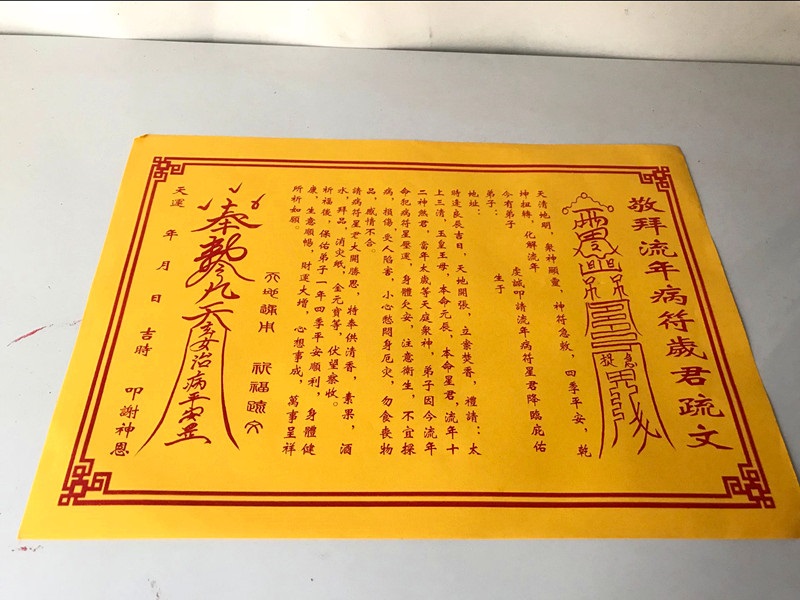 敬拜流年病符歲君疏文
天清地明，衆神顯靈，神符急效，四季平安，乾
坤扭轉，化解流年
今有弟子 虔誠叩請流年病符星君降臨庇佑
弟子： 生于
地址：
時逢良辰吉日，天地開張，立案焚香，禮請：太
上三清，玉皇王母，本命元辰，本命星君，流年十
二神煞君，當年太歲等天庭衆神，弟子因今流年
命犯病符星壓運，身體欠安，注意衛生，不宜探
病，損傷受人陷害，小心愁悶身厄灾，勿食喪物
品，感情不合。
請病符星君大開勝恩，特奉供清香，素果，酒
水，拜品，消灾紙，金元寶等，伏望察收。
祈福後，保佑弟子一年四季平安順利，身體健
康，生意順暢，財運大增，心想事成，萬事呈祥
所祈如願。
祈福疏文
奉
九天
治病平安
天運 年 月 日 吉時 叩謝神恩